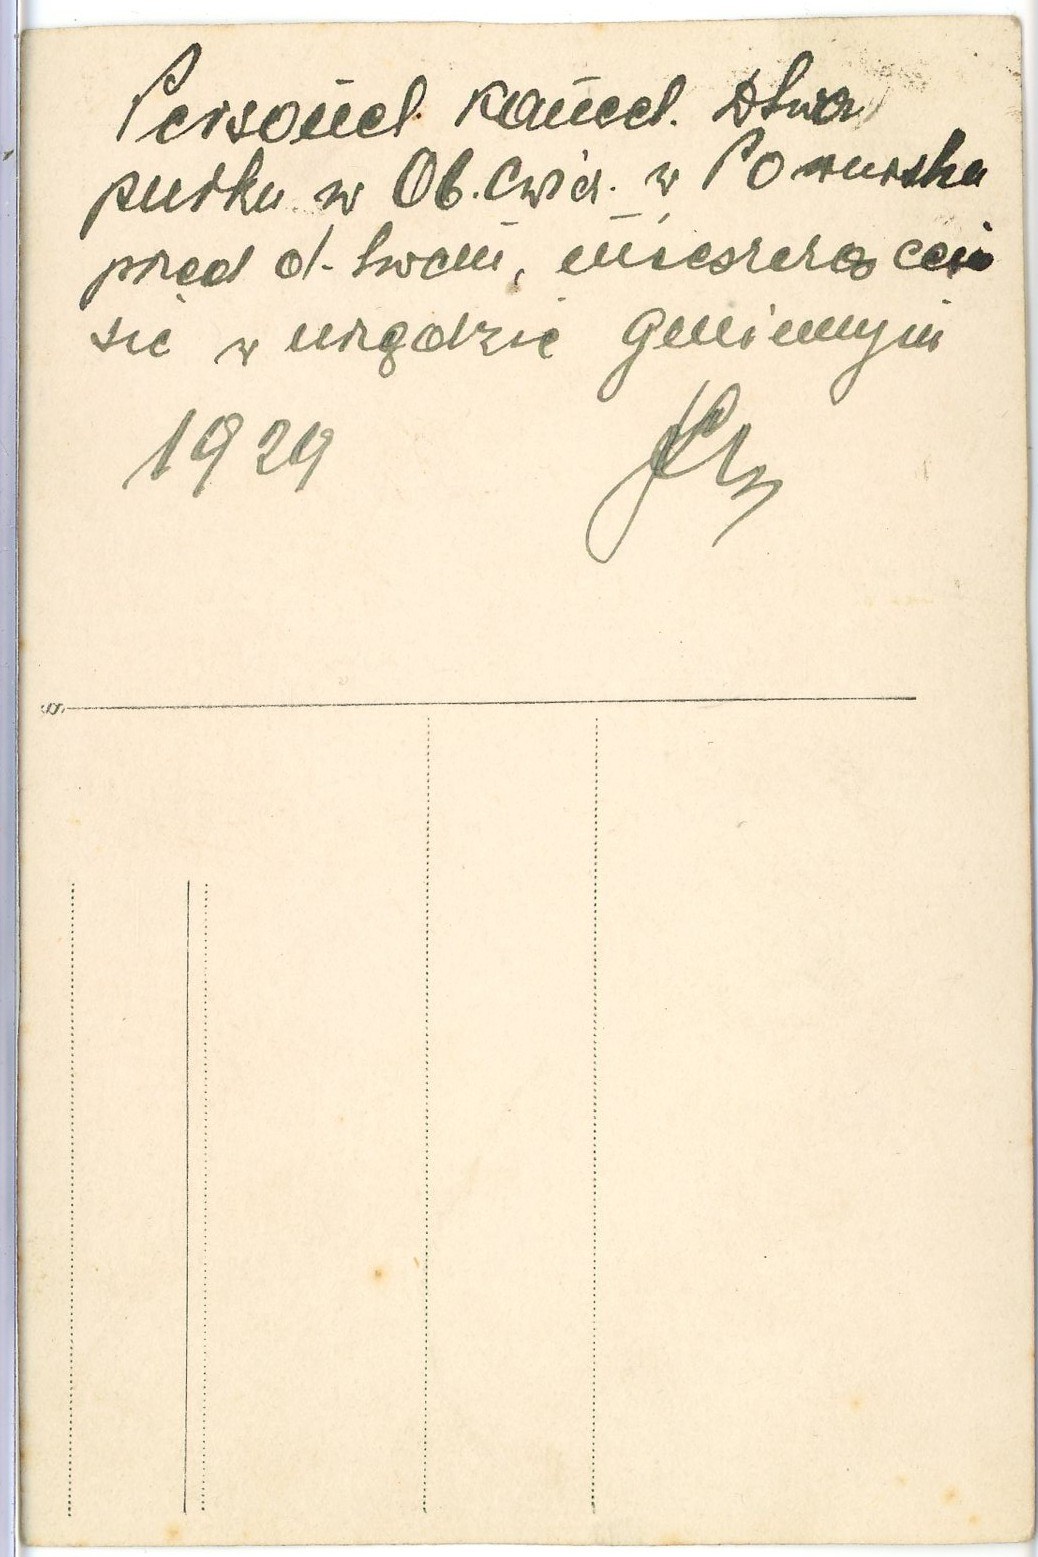 Personel kancel. Dtwa
pułku w Ob. Ćwicz. w Powursku
przed d-twem, mieszczącem
się w urzędzie gminnym
1929